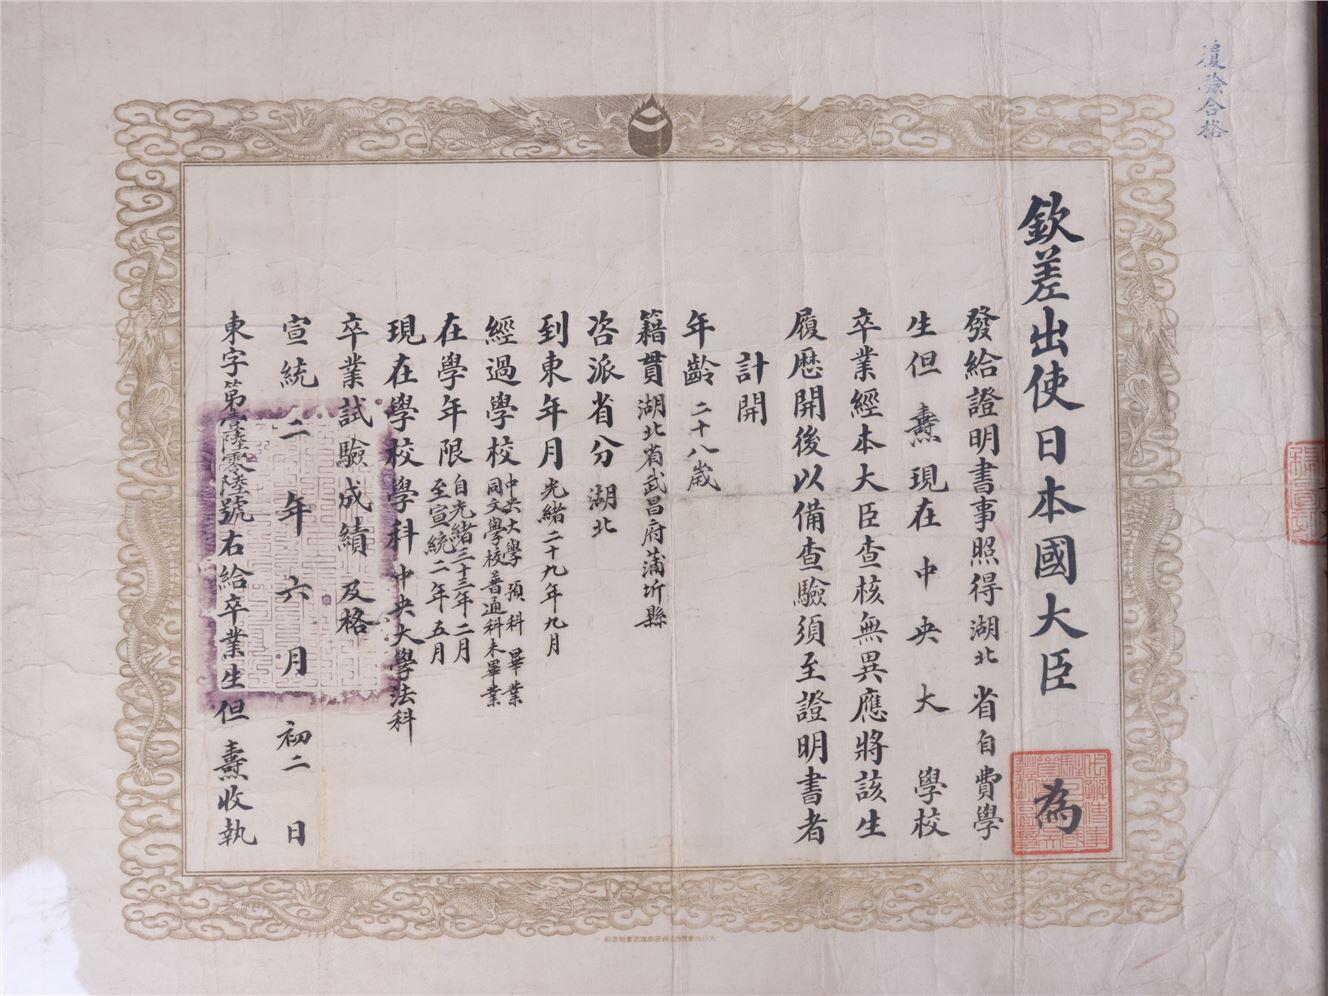 復驗合格
欽差出使日本國大臣 為
發給證明書事照得湖北省自費學
生但燾現在中央大學校
卒業經本大臣查核無異應將該生
履歷開後以備查驗須至證明書者
計開
年齡 二十八歲
籍貫 湖北省武昌府蒲圻縣
咨派省分 湖北
到東年月 光緒二十九年九月
經過學校 中央大學預科畢業
同文學校普通科未畢業
在學年限 自光緒三十三年二月
至宣統二年五月
現在學校學科 中央大學法科
卒業試驗成績 及格
宣統二年六月初二日
東字第壹陸零陸號右給卒業生但燾收執